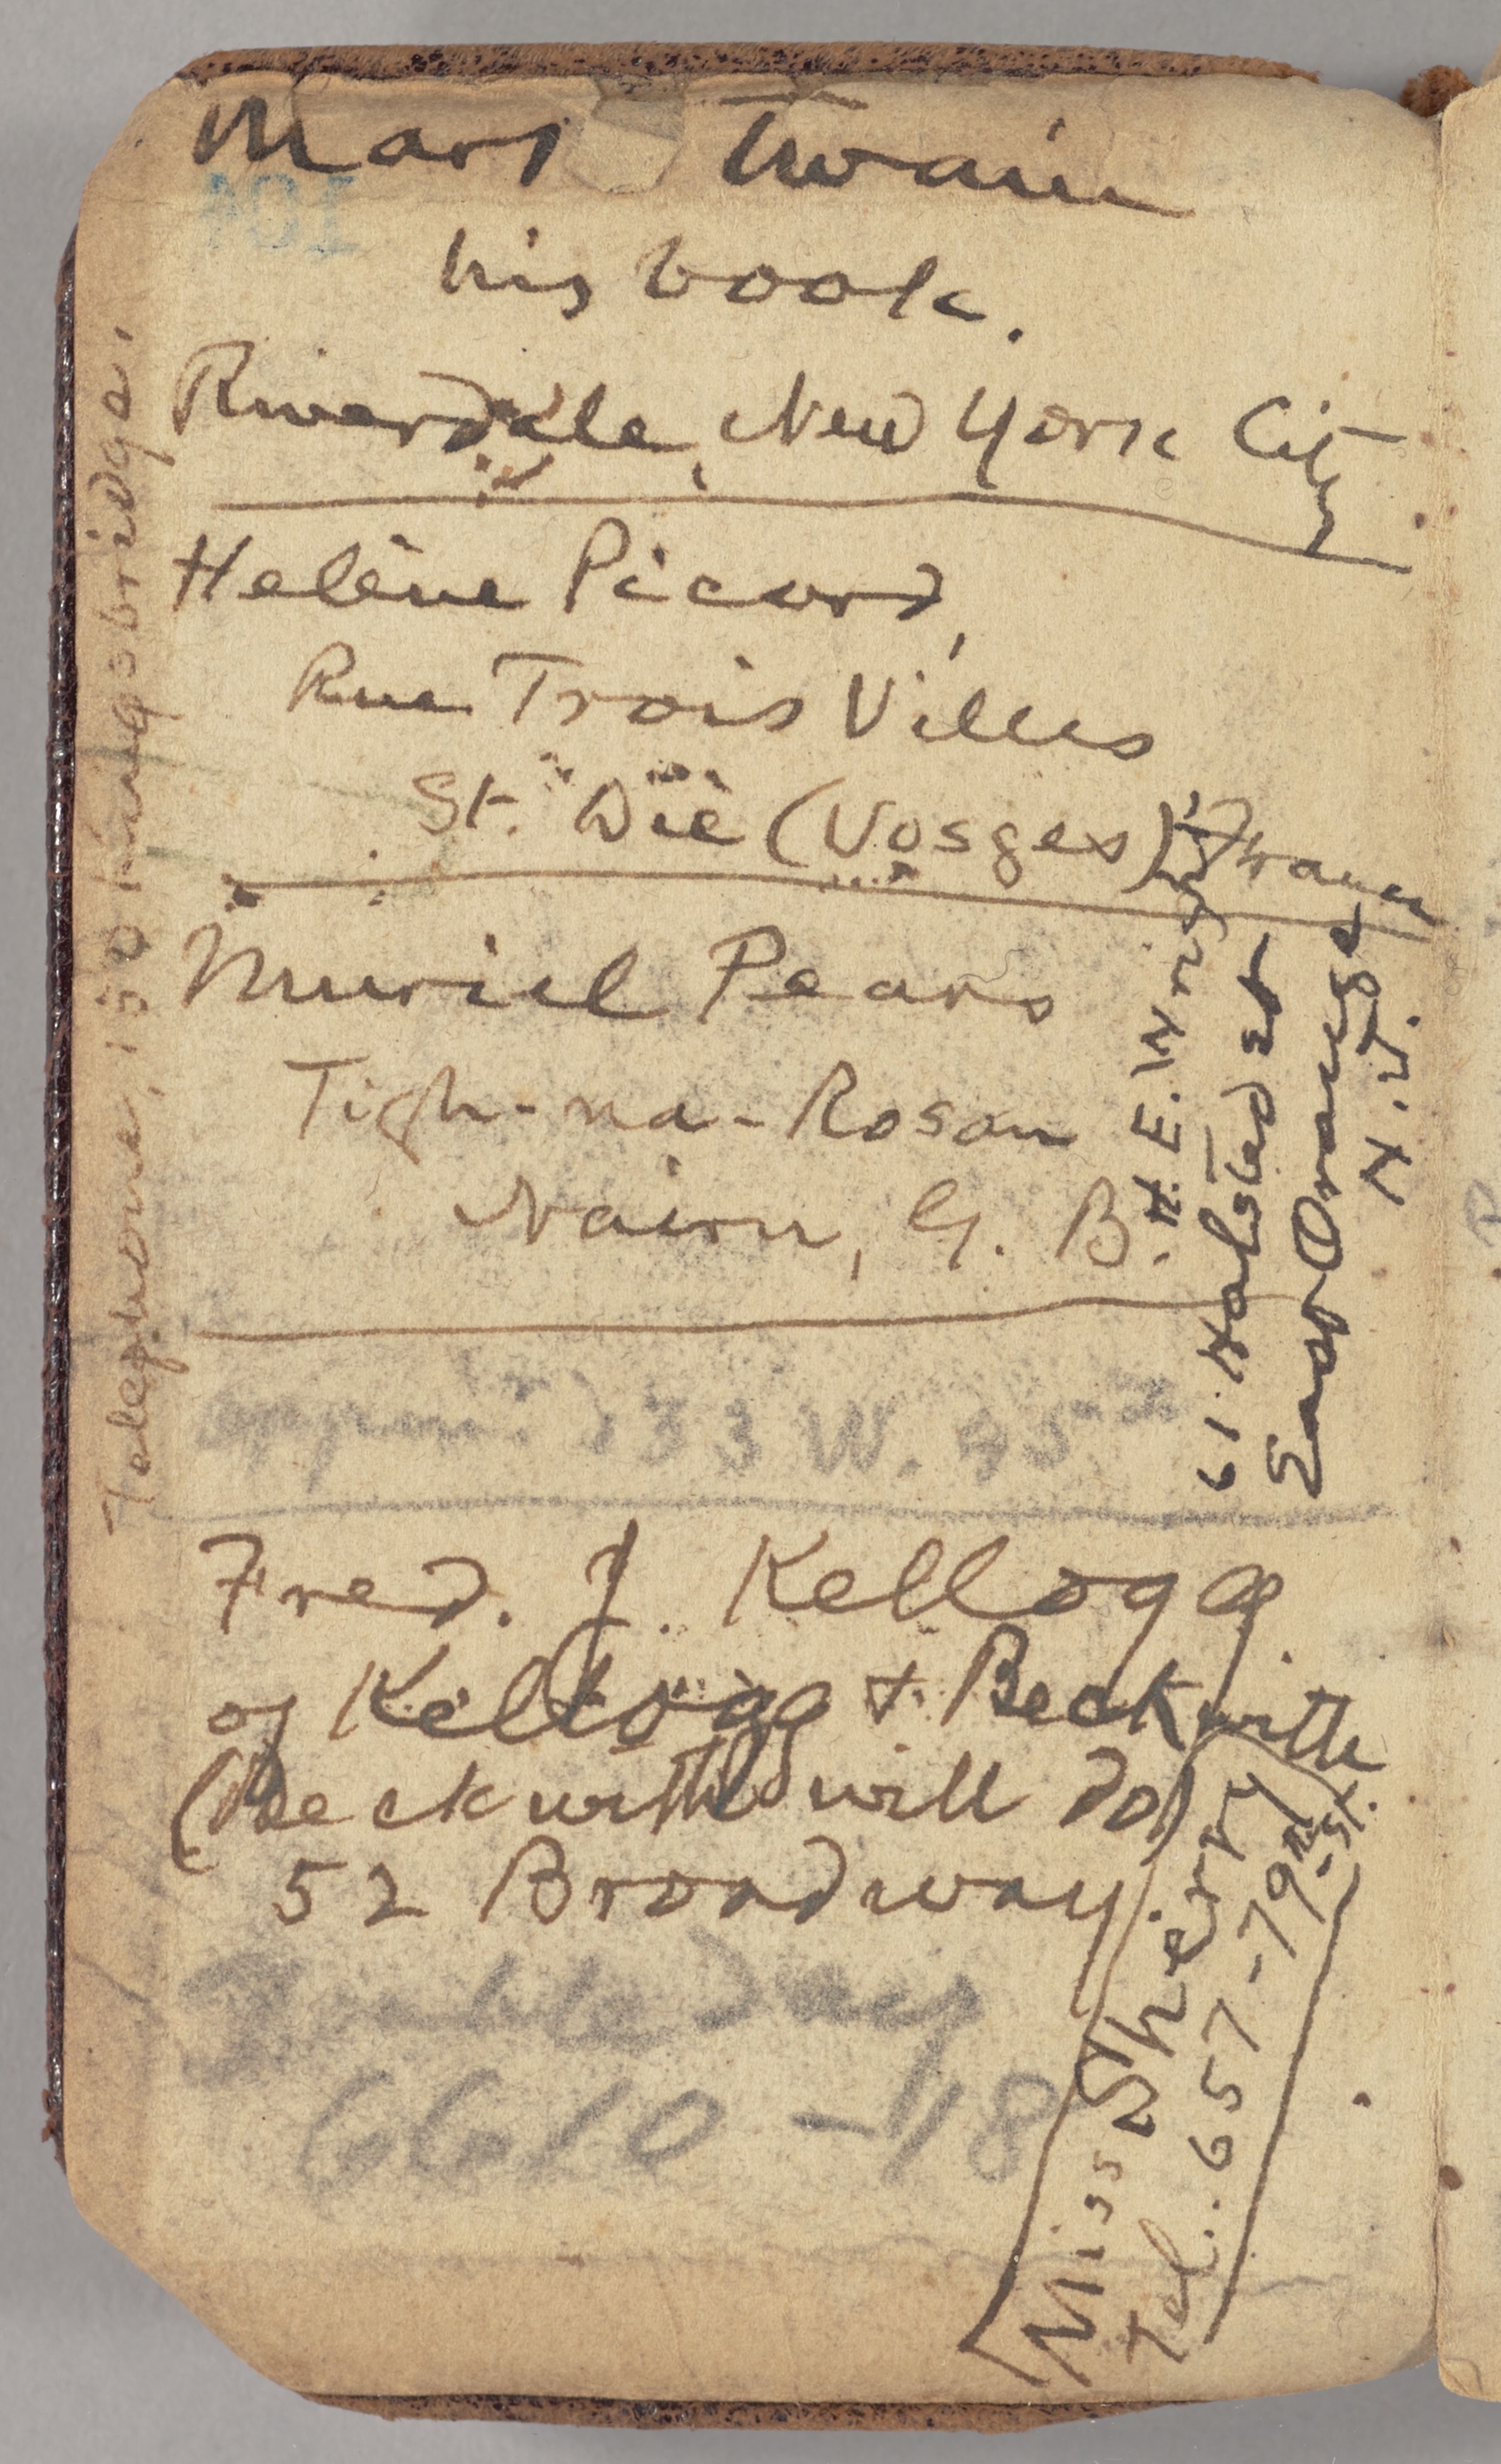 Mark Twain
his book.
Riverdale, New York City
Helène Picard,
Rue Trois Villes
St. Dié (Vosges) France
Muriel Pears
Tigh-na-Rosan
Nairn, G. B.
133 W. 45
Fred. J. Kellogg
of Kellogg & Beckwith
(Beckwith will do)
52 Broadway
Doubleday
6610 - 18
Telephone, 150 Kingsbridge.
H. E. Wright
61 Halsted st
East Orange
N. J.
Miss Sherry
Tel. 657-79th St.